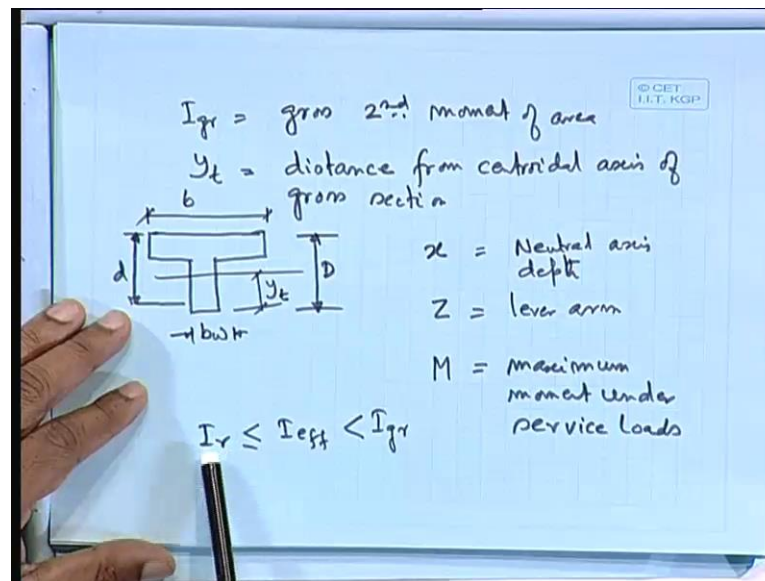 © CET
I.I.T. KGP
Igr = gross 2nd moment of area
yt = distance from centroidal axis of
gross section
b
d
D
yt
bw
x = Neutral axis
depth
Z = lever arm
M = maximum
moment under
service loads
Ir ≤ Ieff < Igr